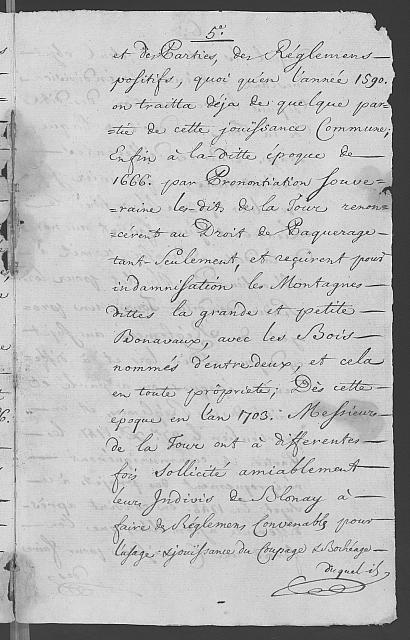 5.e
et des Parties, des Réglemens
positifs, quoi qu'en l'année 1590.
on traitta déja de quelque par-
=tie de cette jouissance Commune;
Enfin à la ditte époque de
1666. par Prononciation Souve-
=raine les dits de la Tour renon-
=cérent au Droit de Paquerage
tant Seulement, et reçûrent pour
indamnisation les Montagnes
dittes la grande et petite
Bonavaux, avec les Bois
nommés d'entredeux, et cela
en toute propriété; Dès cette
époque en l'an 1703. Messieurs
de la Tour ont à differentes
fois Sollicité amiablement
leurs Indivis de Blonay à
faire des Réglemens Convenables pour
l'usage & jouissance du Coupage & Bochéage
duquel il